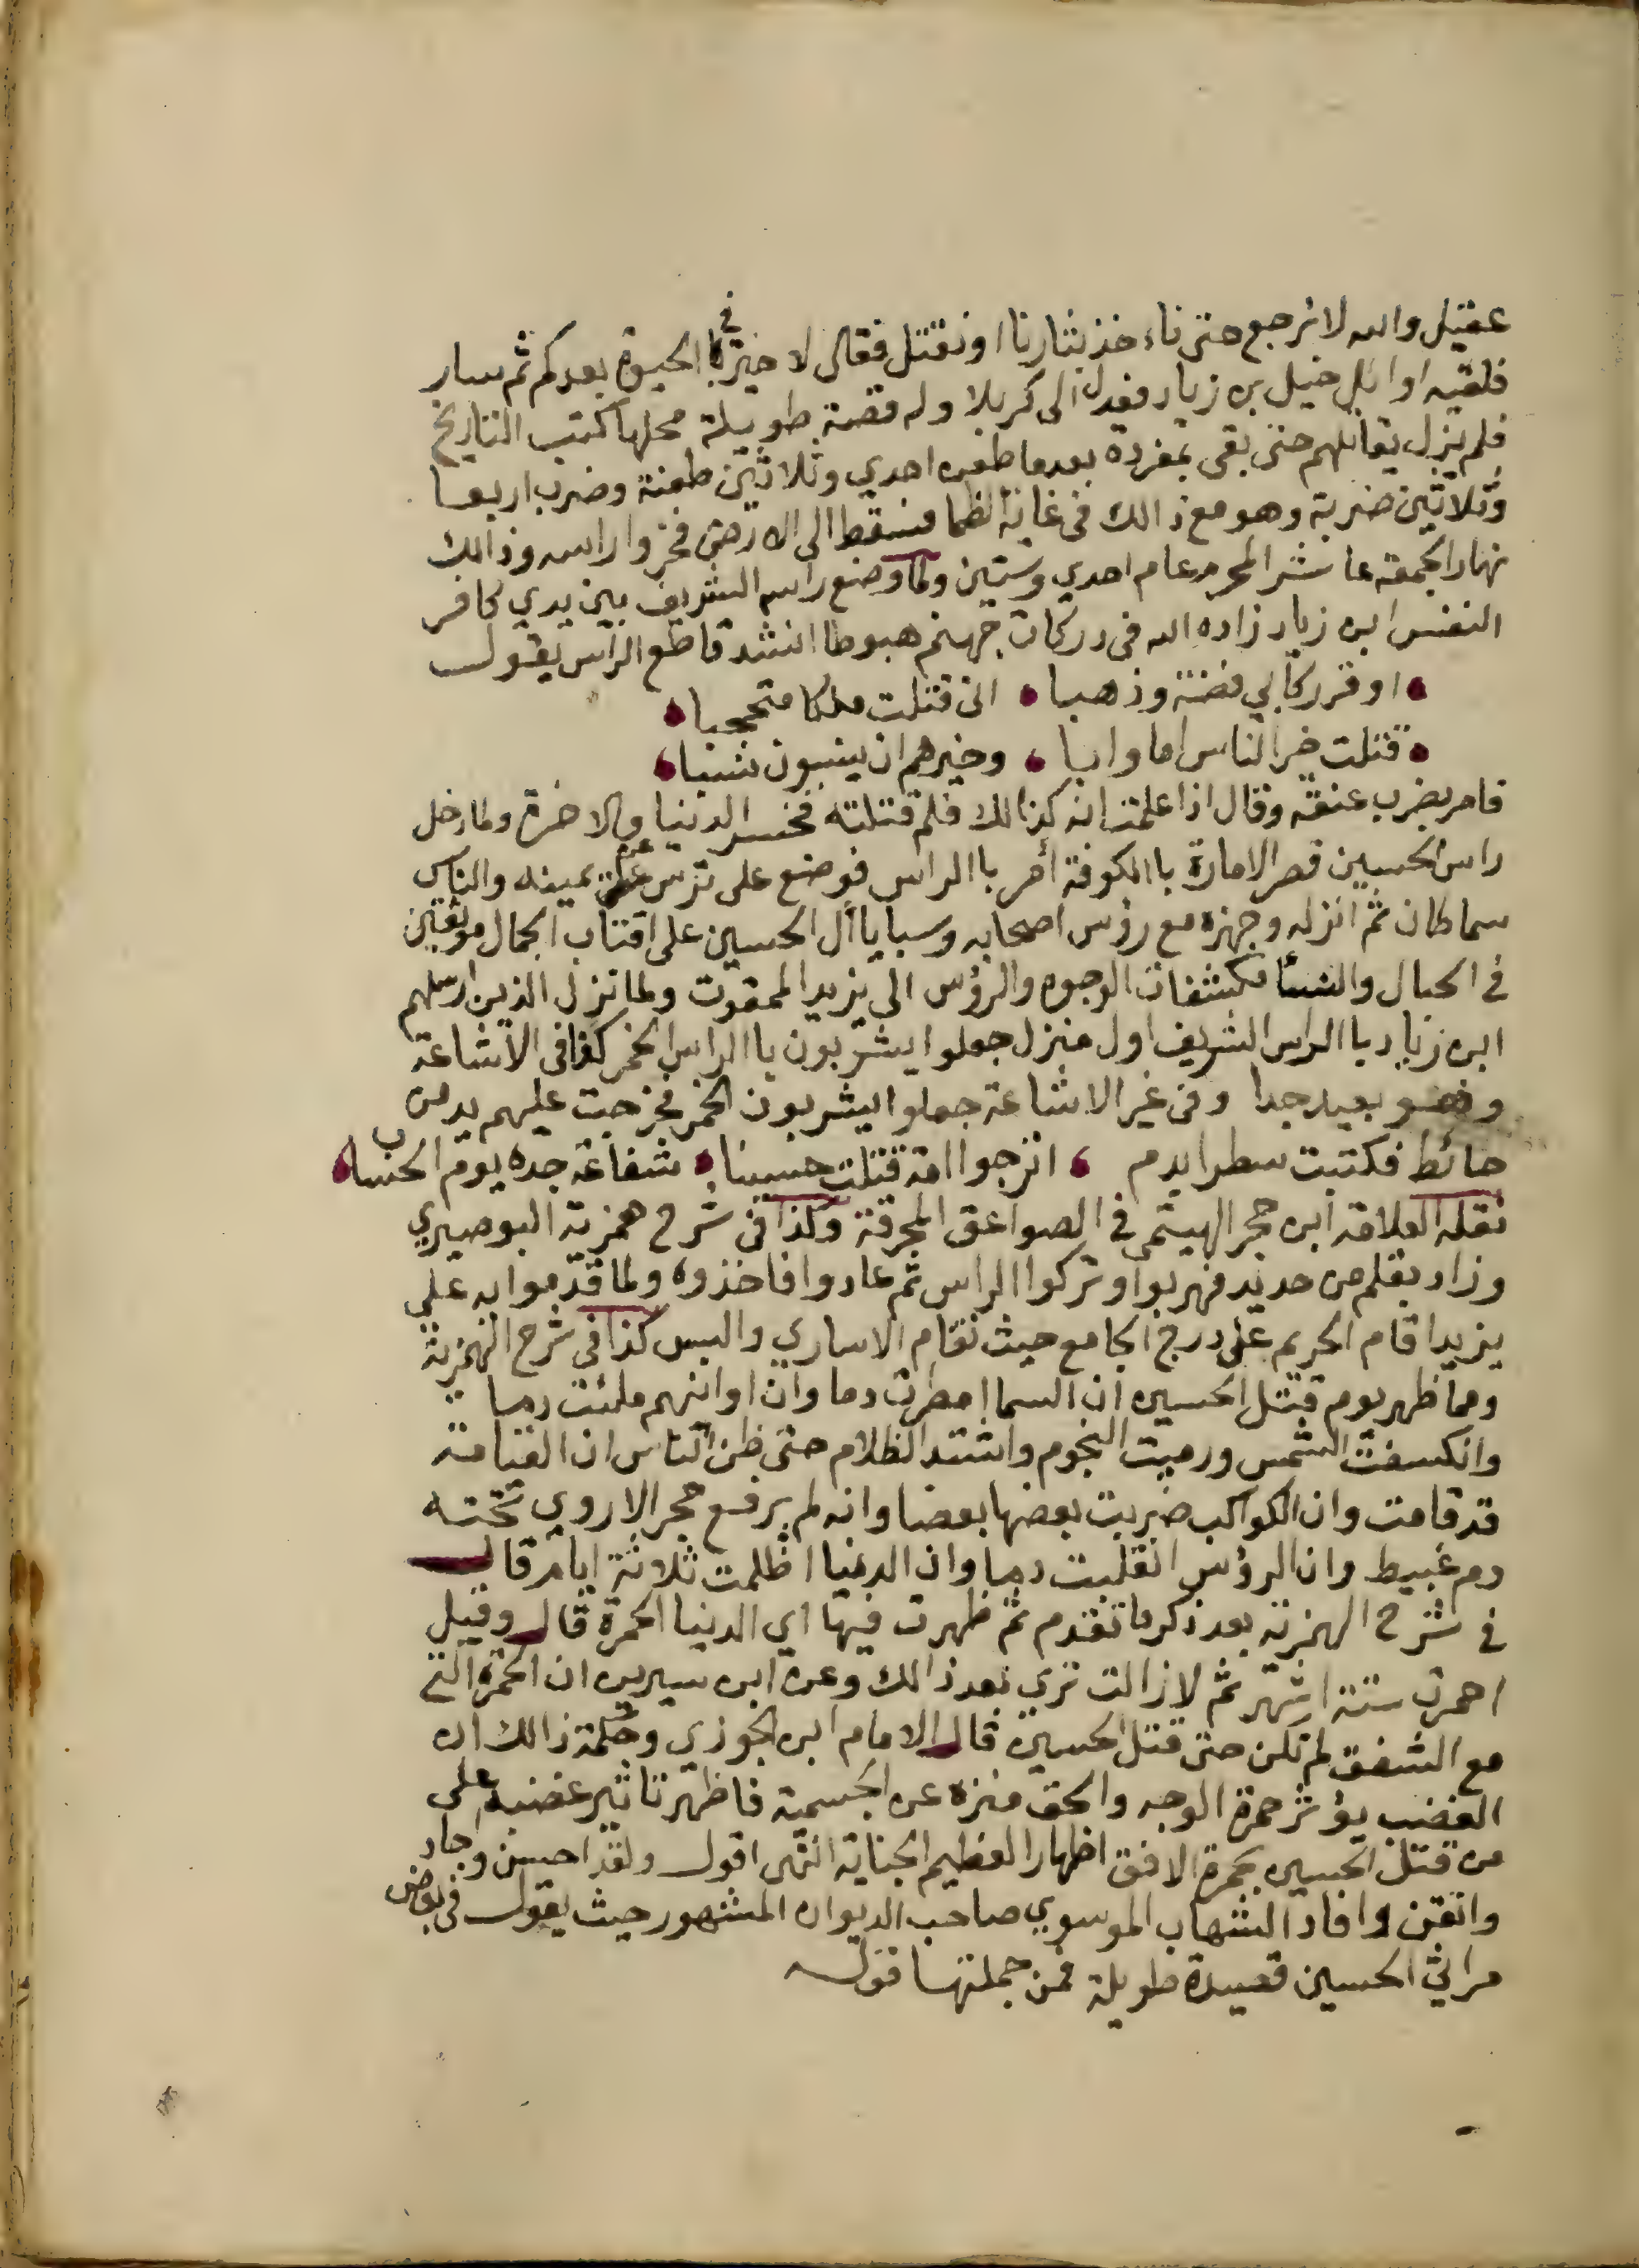 عقيل والله لا نرجع حتى ناءخذ بثارنا او نقتل فقال لا خير في الحيوة بعدكم ثم سار
فلقيه اوائل خيل بن زياد فعدل الى كربلا وله قصة طويلة محلها كتب التاريخ
فلم يزل يقاتلهم حتى بقى بمفرده بعدما طعن احدي وثلاثين طعنة وضرب اربعا
وثلاثين ضربة وهو مع ذالك في غاية الظما فسقط الى الارض فحزوا راسه وذالك
نهار الجمعة عاشر المحرم عام احدي وستين ولما وضع راسه الشريف بين يدي كافر
النفس ابن زياد زاده الله في دركات جهنم هبوطا انشد قاطع الراس يقول
اوقر ركابي فضة وذهبا • اني قتلت ملكا محجبا
قتلت خير الناس اما وابا • وخيرهم ان ينسبون نسبا
فامر بضرب عنقه وقال اذا علمت انه كذالك فلم قتلته فخسر الدنيا والاخرة ولما دخل
راس الحسين قصر الامارة باالكوفة أمر باالراس فوضع على ترس عن يمينه والناس
سماطان ثم انزله وجهزه مع رؤس اصحابه وسبايا أل الحسين على اقتاب الجمال موثقين
في الحبال والنسا مكشفات الوجوه والرؤس الى يزيد الممقوت ولما نزل الذين ارسلهم
ابن زياد باالراس الشريف اول منزل جعلوا يشربون باالراس الخمر كذا في الاشاعة
وهو بعيد جدا وفي غير الاشاعة جعلوا يشربون الخمر فخرجت عليهم يد من
حائط فكتبت سطرا بدم • اترجوا امة قتلت حسينا • شفاعة جده يوم الحساب
نقله العلامة ابن حجر الهيتمي في الصواعق المحرقة وكذا في شرح همزية البوصيري
وزاد بقلم من حديد فهربوا وتركوا الراس ثم عادوا فاخذوه ولما قدموا به على
يزيد اقام الحريم على درج الجامع حيث تقام الاساري والبس كذا في شرح الهمزية
ومما ظهر يوم قتل الحسين ان السما امطرت دما وان اوانيهم ملئت دما
وانكسفت الشمس ورميت النجوم واشتد الظلام حتى ظن الناس ان القيامة
قد قامت وان الكواكب ضربت بعضها بعضا وانه لم يرفع حجر الا روي تحته
دم عبيط وان الرؤس انقلبت دما وان الدنيا اظلمت ثلاثة ايام قال
في شرح الهمزية بعد ذكر ما تقدم ثم ظهرت فيها اي الدنيا الحمرة قال وقيل
احمرت ستة اشهر ثم لا زالت تري بعد ذالك وعن ابن سيرين ان الحمرة التي
مع الشفق لم تكن حتى قتل الحسين قال الامام ابن الجوزي وحكمة ذالك ان
الغضب يؤثر حمرة الوجه والحق منزه عن الجسمية فاظهر تاثير غضبه على
من قتل الحسين بحمرة الافق اظهارا لعظيم الجناية انتهى اقول ولقد احسن وجاد
واتقن وافاد الشهاب الموسوي صاحب الديوان المشهور حيث يقول في بعض
مراثي الحسين قصيدة طويلة فمن جملتها قوله